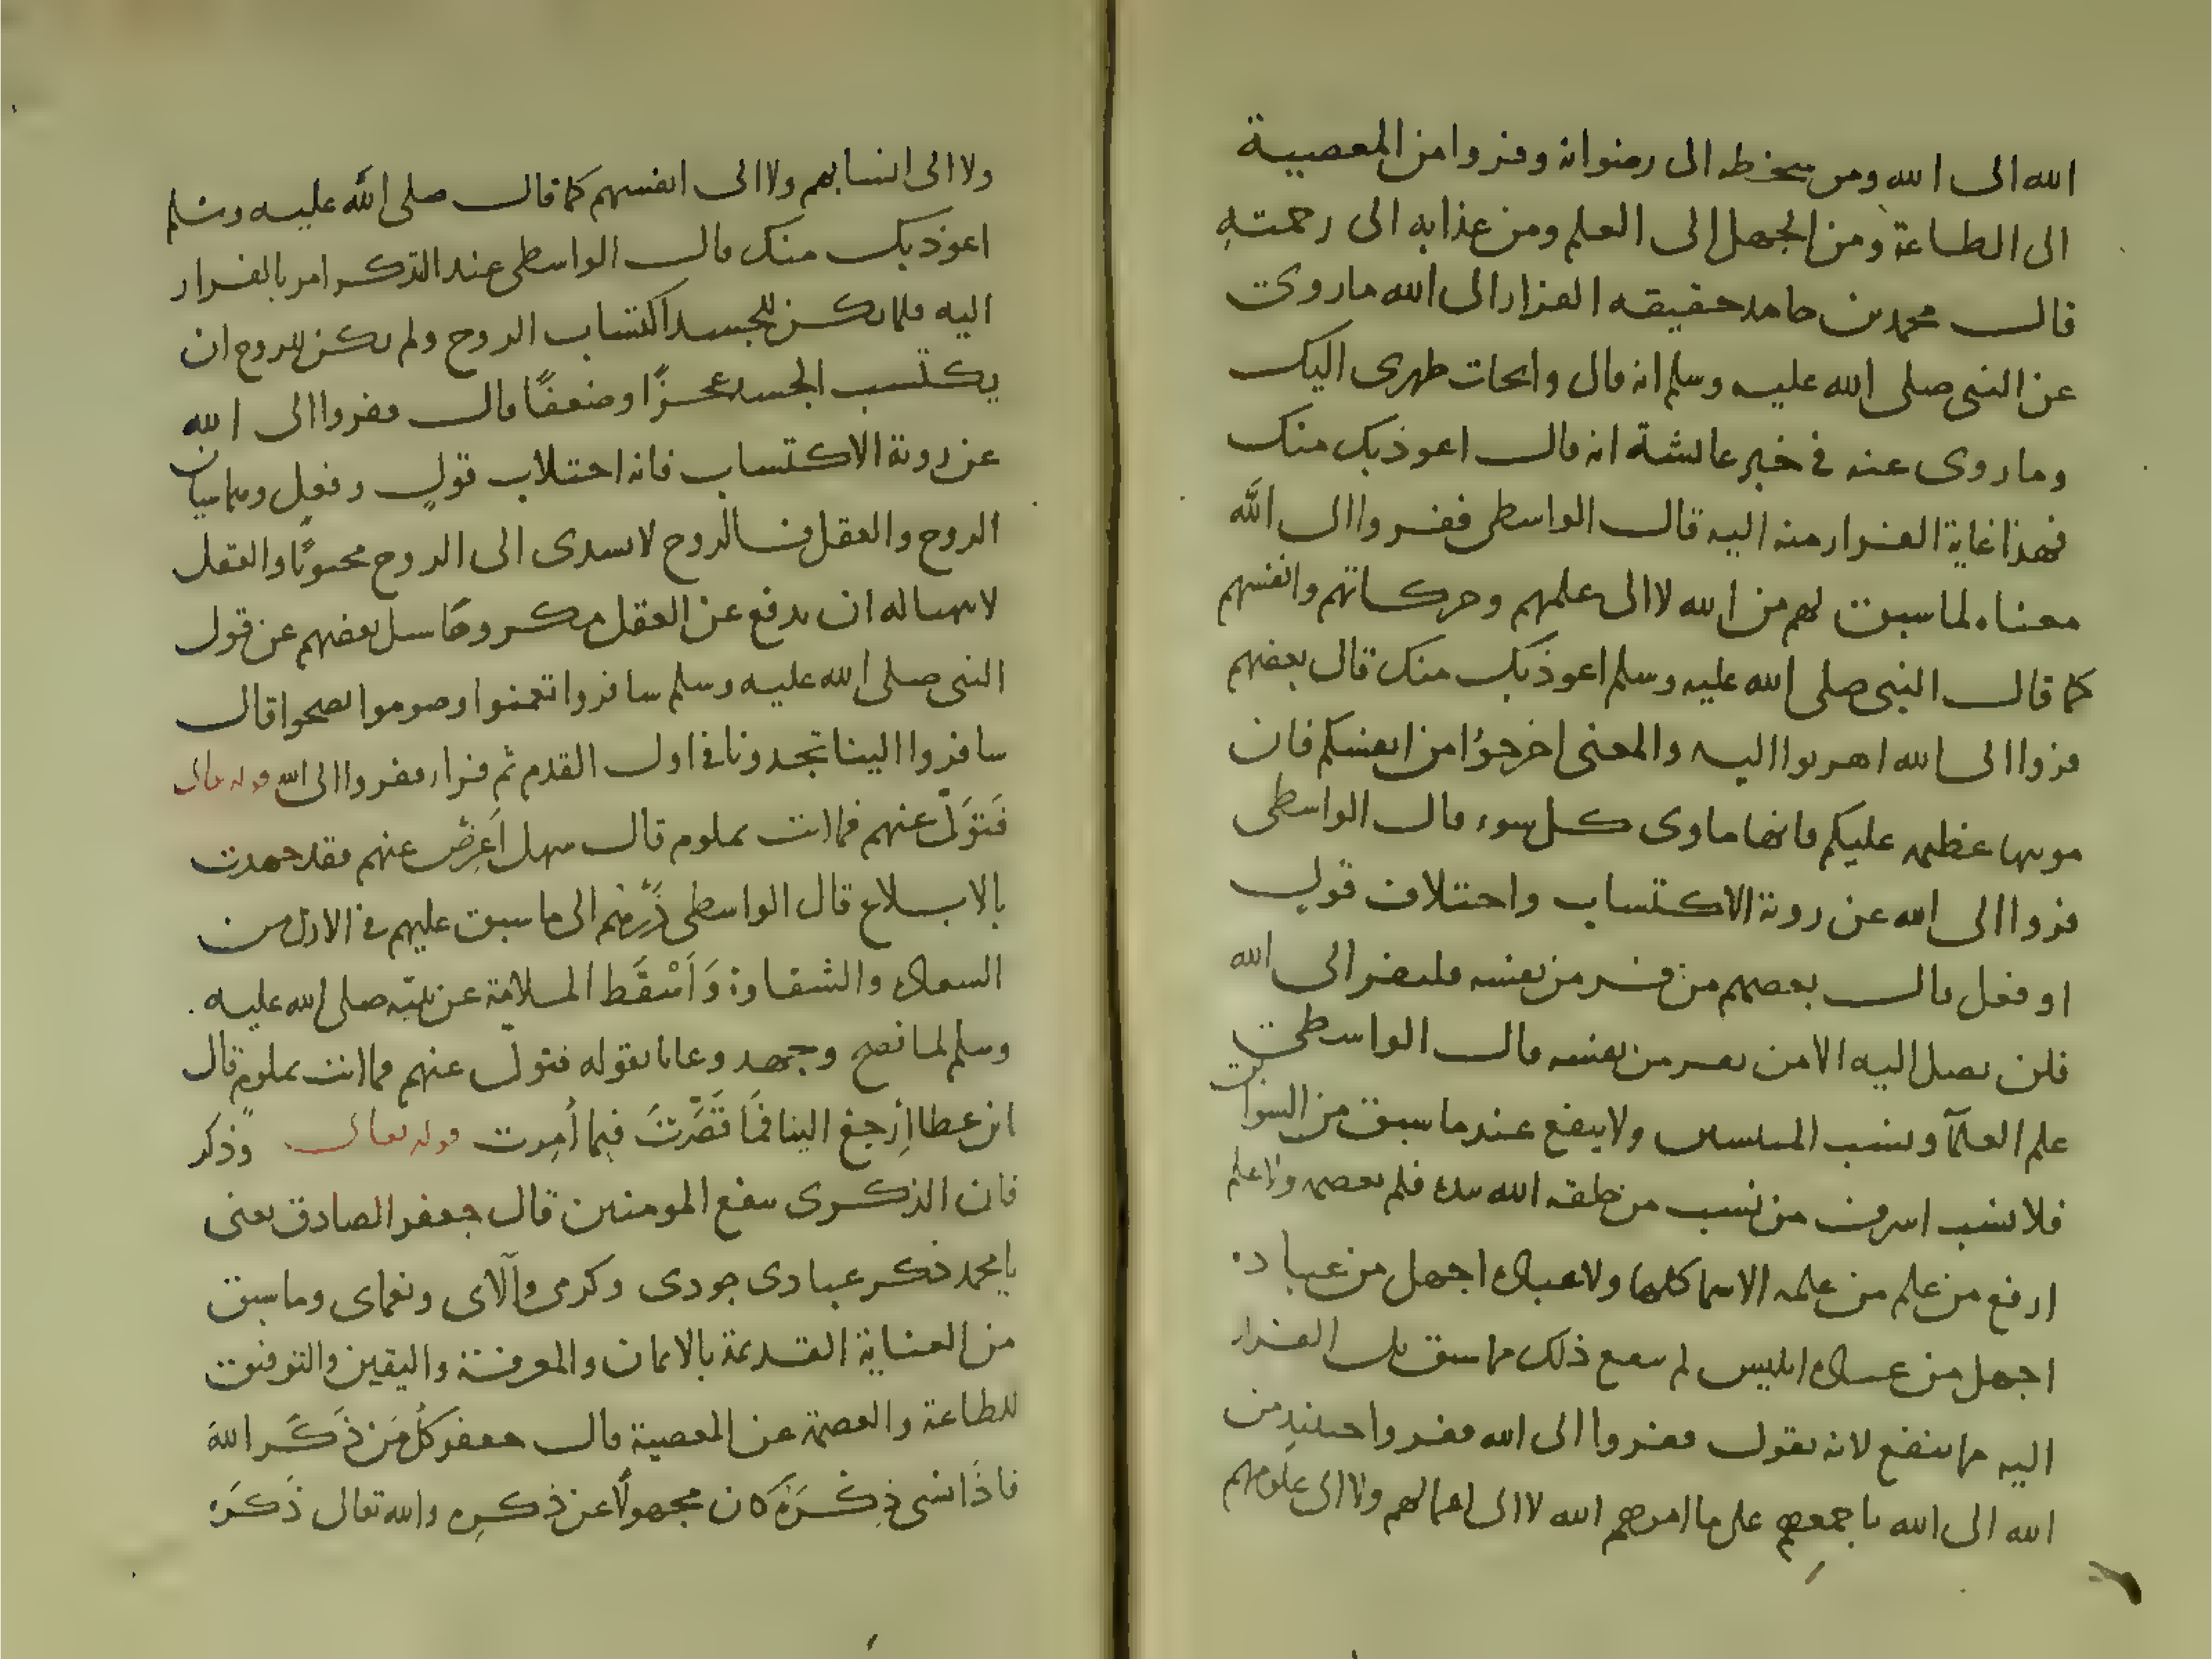 الله الى الله ومن سخطه الى رضوانه وفروا من المعصية
الى الطاعة ومن الجهل الى العلم ومن عذابه الى رحمته
قال محمد بن حامد حقيقه الفرار الى الله ما روى
عن النبى صلى الله عليه وسلم انه قال والجات ظهرى اليك
وما روى عنه فى خبر عائشة انه قال اعوذ بك منك
فهذا غاية الفرار منه اليه قال الواسطى ففروا الى الله
معناه لما سبق لهم من الله لا الى علمهم وحركاتهم وانفسهم
كما قال النبى صلى الله عليه وسلم اعوذ بك منك قال بعضهم
فروا الى الله اهربوا اليه والمعنى اخرجوا من انفسكم فان
عظيمه عليكم فانها ماوى كل سوء قال الواسطى
فروا الى الله عن روية الاكتساب واختلاف قول
او فعل قال بعضهم من فر من نفسه فليفر الى الله
فلن يصل اليه الا من يفر من نفسه قال الواسطى
علم العلمآ ونسب ولا ينفع عند ما سبق من السوابق
فلا نسب اشرف من نسب من خلقه الله بيده فلم يعصمه ولا علم
ارفع من علم من علمه الاسما كلها ولا عبادة اجهل من عباده
اجهل من عبادة ابليس لم ينفع ذلك ما سبق الفرار
اليه ما ينفع لانه يقول ففروا الى الله ففروا حينئذ من
الله الى الله باجمعهم على ما امرهم الله لا الى اعمالهم ولا الى علومهم
ولا الى انسابهم ولا الى انفسهم كما قال صلى الله عليه وسلم
اعوذ بك منك قال الواسطى عند الذكر امر بالفرار
اليه فلما يكن للجسد اكتساب الروح ولم يكن للروح ان
يكتسب الجسد عجزًا وضعفًا قال ففروا الى الله
عن روية الاكتساب فانه اختلاب قولٍ وفعلٍ وهما سيان
الروح والعقل فالروح لا يسدى الى الروح محبوبًا والعقل
لا يتهيا له ان يدفع عن العقل مكروهًا سل بعضهم عن قول
النبى صلى الله عليه وسلم سافروا تغنموا وصوموا تصحوا قال
سافروا الينا تجدونا فى اول القدم ثم فرا ففروا الى الله قوله تعالى
فَتَوَلّ عنهم فما انت بملوم قال سهل اَعرِض عنهم فقد جهدت
بالابلاغ قال الواسطى ذَرهم الى ما سبق عليهم فى الازل من
السعادة والشقاوة وَاَسْقَط الملامة عن نبيّه صلى الله عليه
وسلم لما نصح وجهد وعانا بقوله فتولّ عنهم فما انت بملوم قال
ابن عطا اِرجع الينا فمَا قَصَّرتَ فيما اُمِرت قوله تعالى وذكر
فان الذكرى تنفع المومنين قال جعفر الصادق يعنى
يا محمد ذكر عبادى جودى وكرمى وآلاى ونعماى وما سبق
من العناية القديمة بالايمان والمعرفة واليقين والتوفيق
للطاعة والعصمة عن المعصية قال جعفر كل مَن ذَكَر الله
فاذَا نسى ذِكْرَهُ كان مجهولًا عن ذكرِه والله تعالى ذَكَرَه